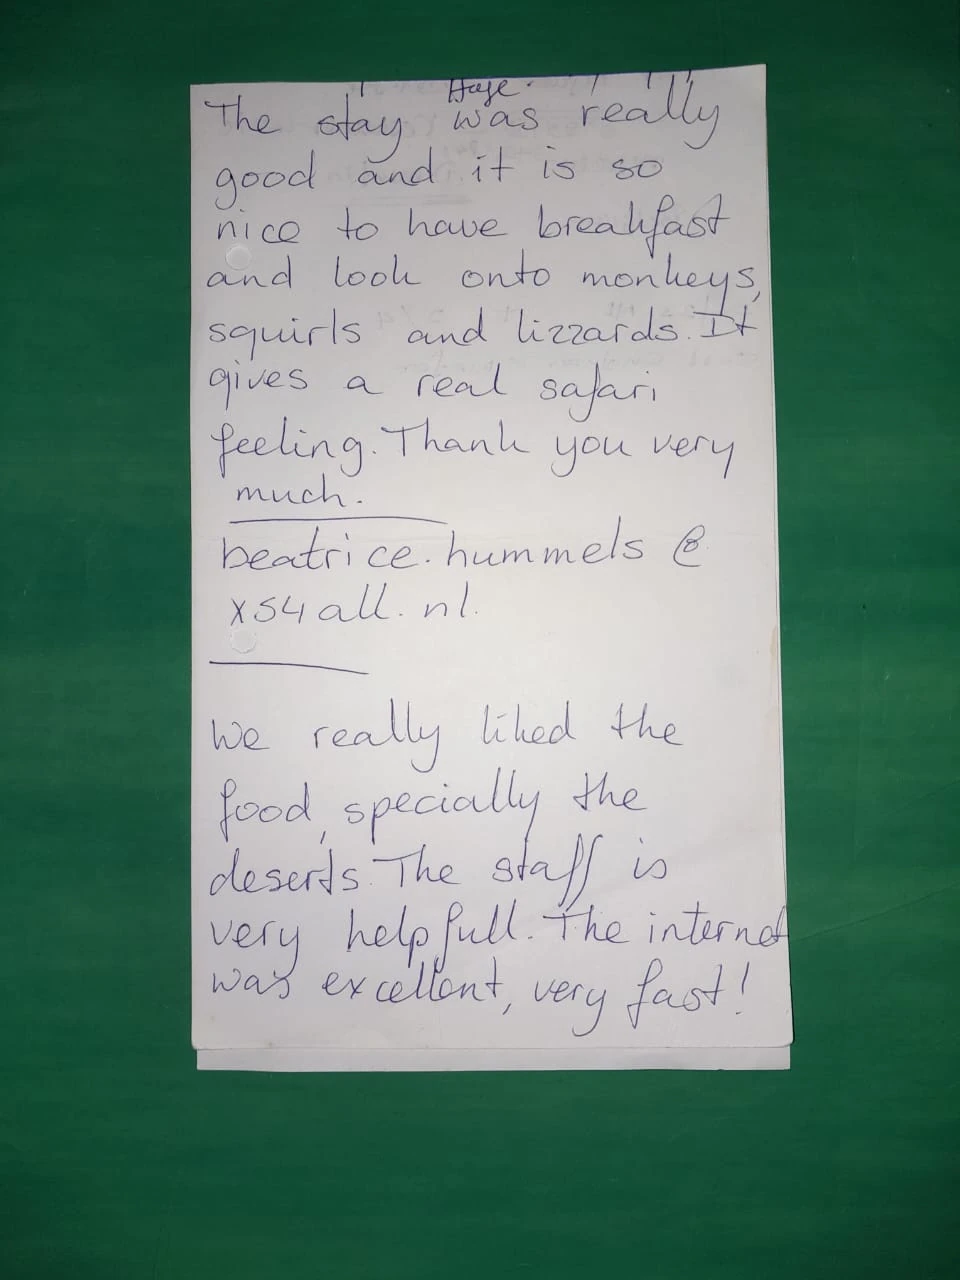 The stay was really
good and it is so
nice to have breakfast
and look onto monkeys,
squirls and lizzards. It
gives a real safari
feeling. Thank you very
much.
beatrice.hummels @
xs4all.nl.
We really liked the
food, specially the
deserts. The staff is
very helpfull. The internet
was excellent, very fast!